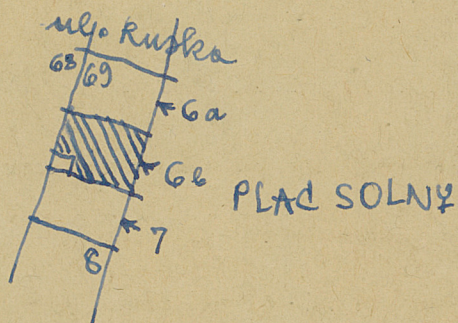 ul. Ruska
68 69
6a
6b
PLAC SOLNY
7
8